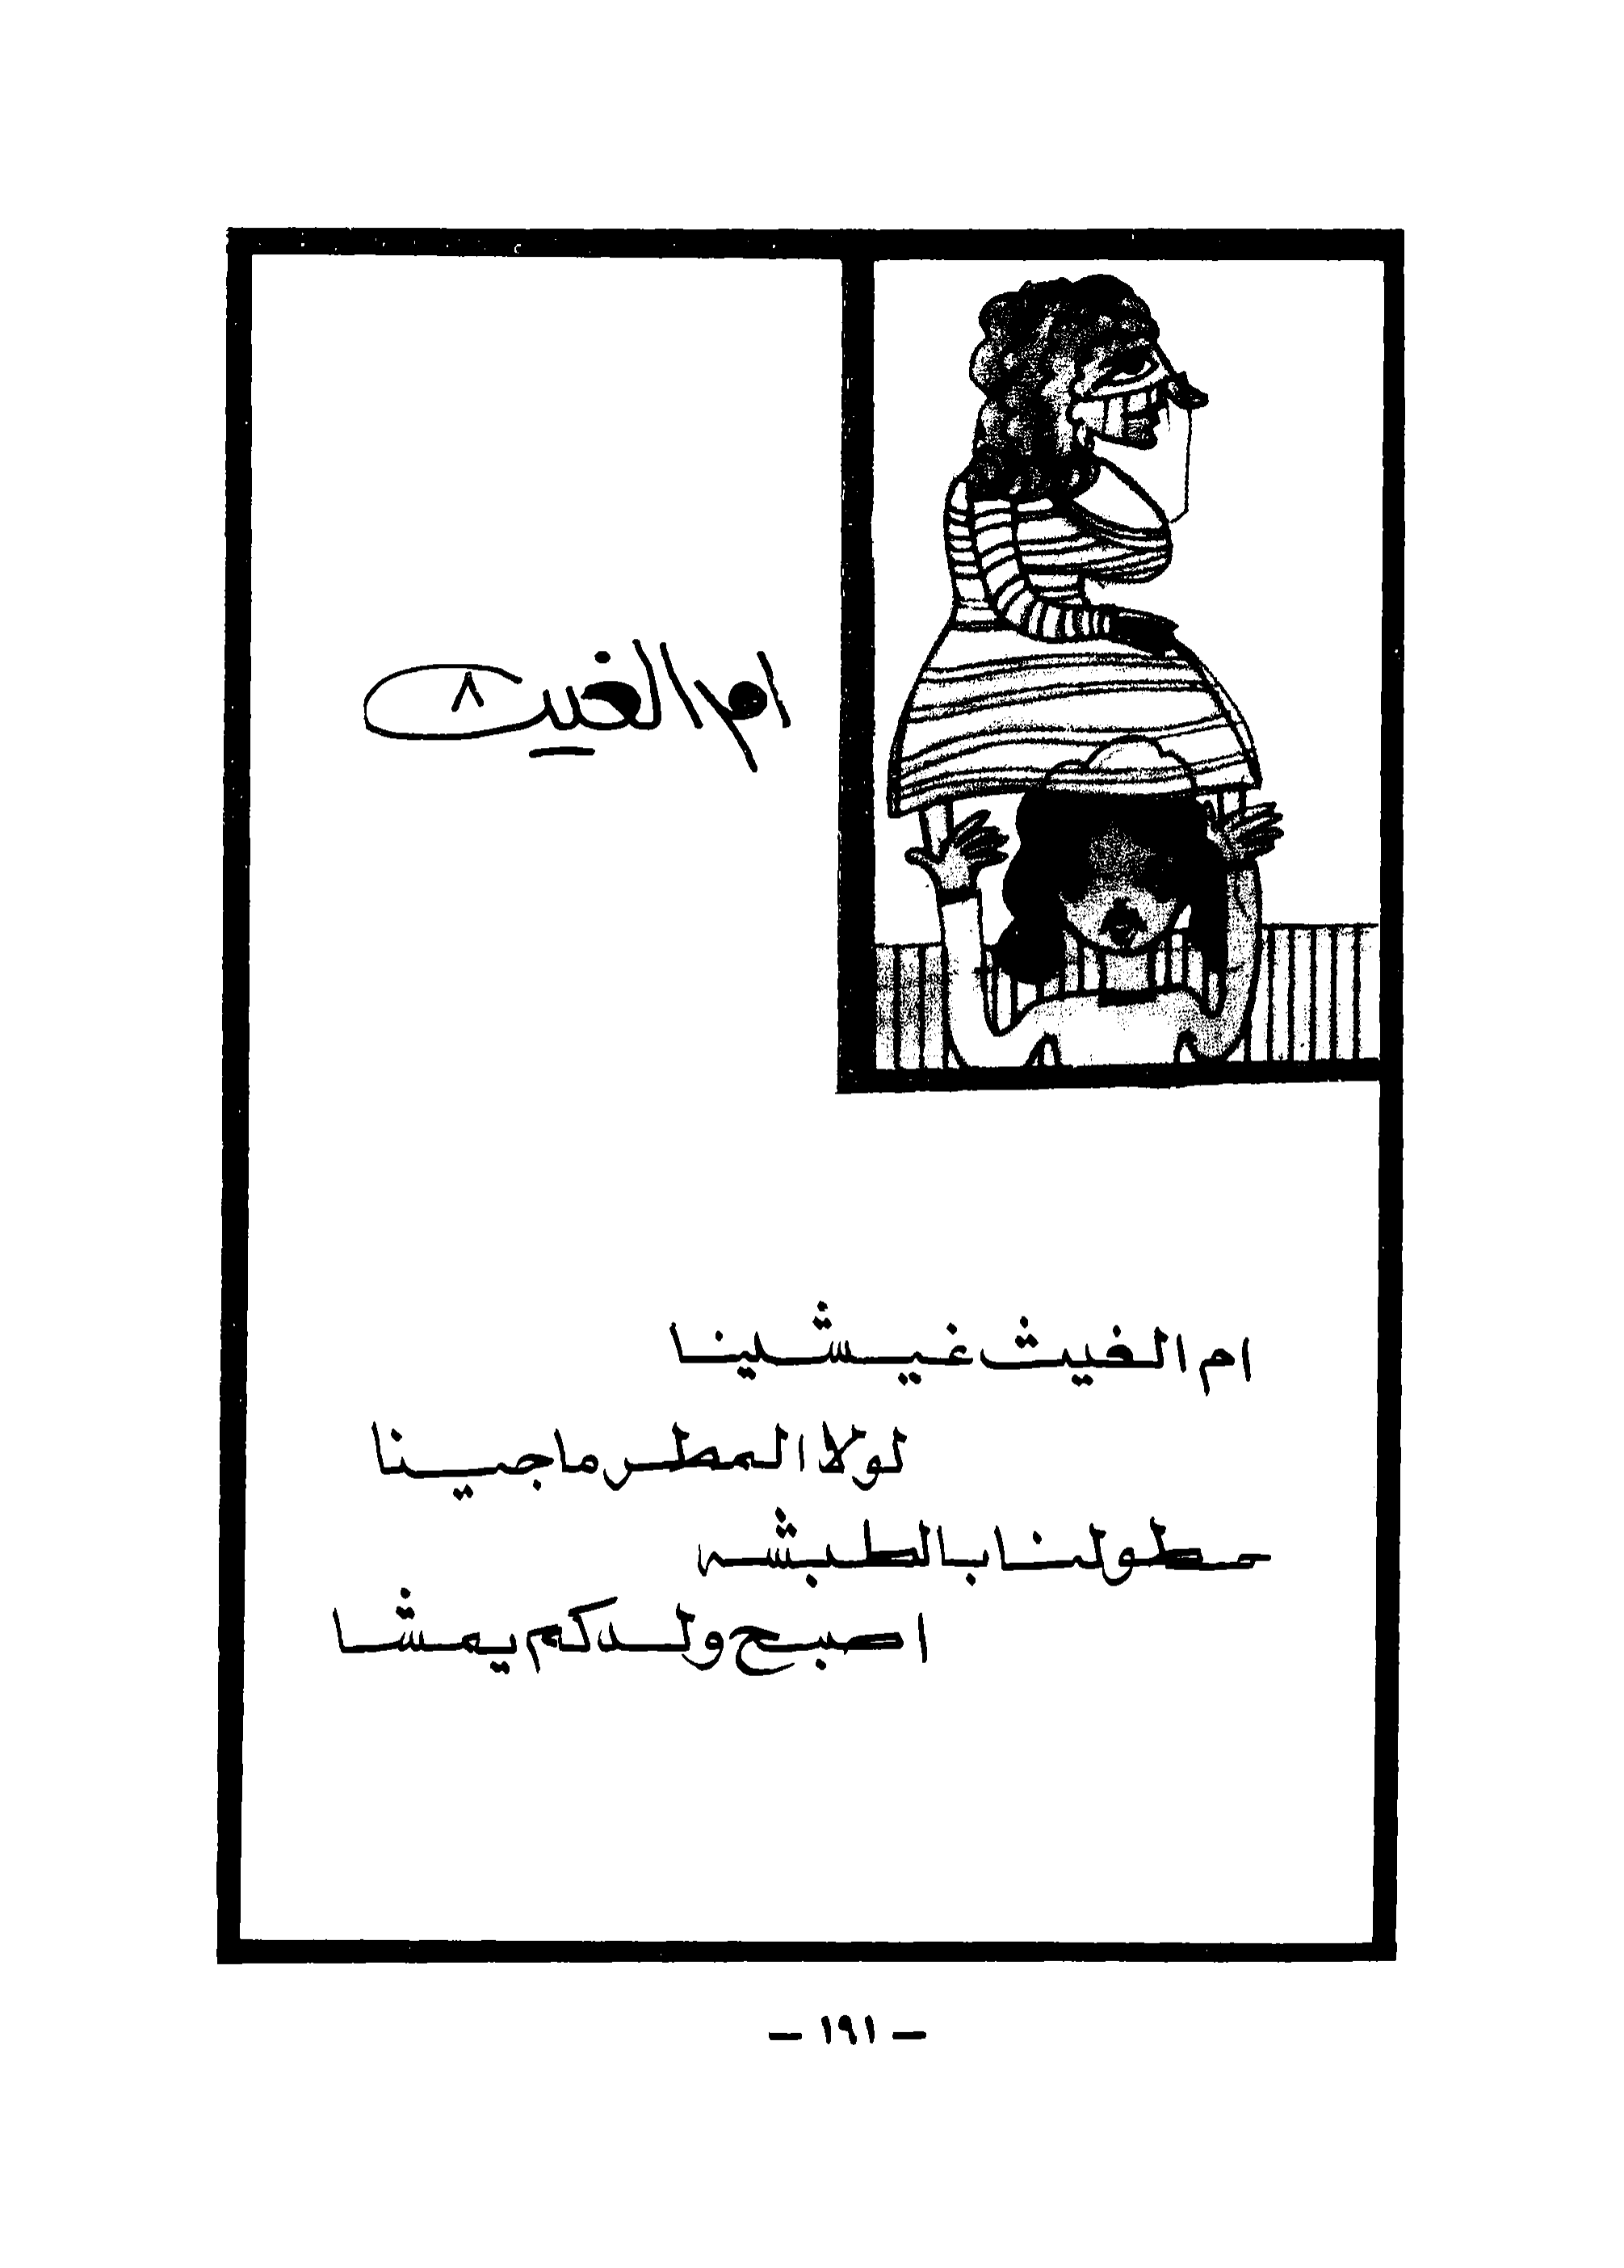 ام الغيث
ام الغيث غيثينا
لولا المطر ما جينا
حطولنا بالطبشه
اصبح ولدكم يمشا
– ١٩١ –